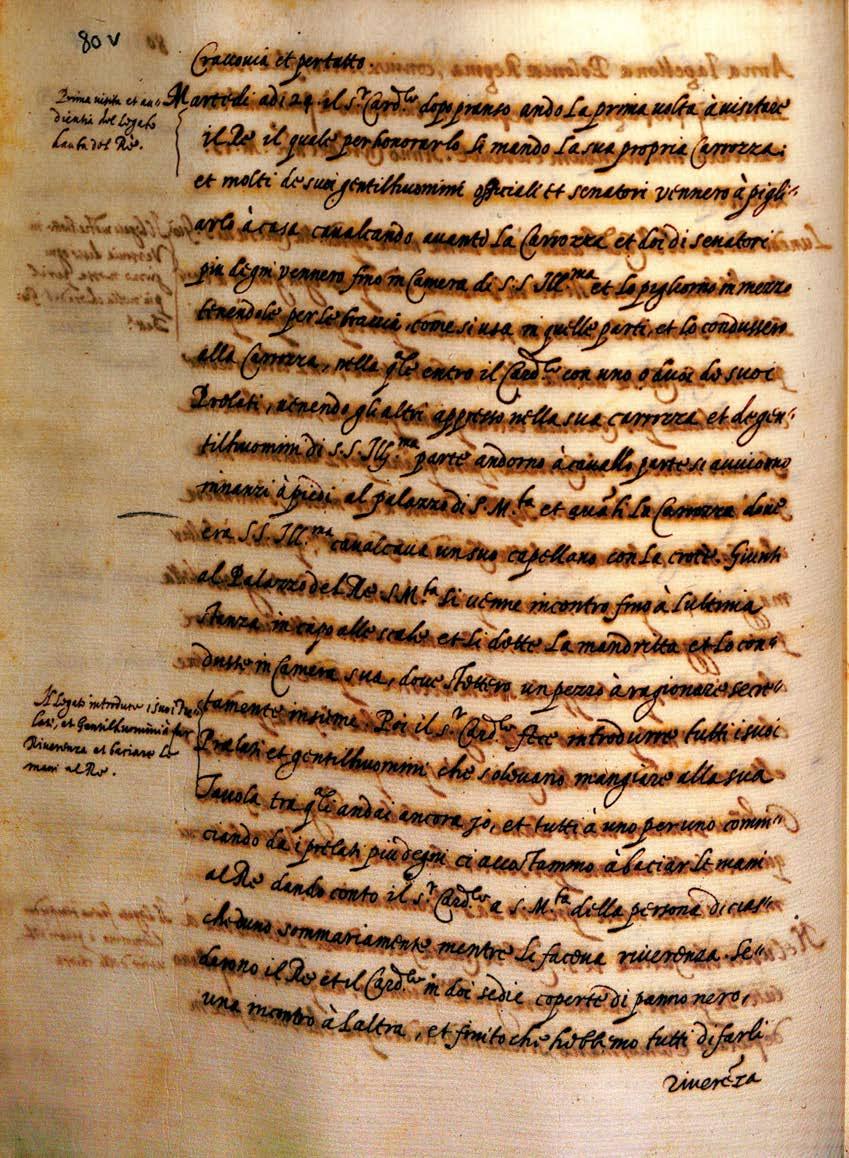 80 v
Craccovia et per tutto.
Prima visita et au=
dientia del Legato
hauta dal Rè.
Martedi adi 24. il s.r Card.le dopo pranso ando la prima volta à visitare
il Re il quale per honorarlo li mando la sua propria Carrozza:
et molti de suoi gentilhuomini officiali et senatori vennero à pigli=
arlo à casa caualcando auante la Carrozza et doi di senatori
piu degni vennero fino in Camera di S.S. Ill.ma et lo pigliorno in mezzo
tenendole per le braccia, come si usa in quelle parti, et lo condussero
alla Carrozza, nella q.le entro il Card.le con uno o dui de suoi
Prelati, uenendo gli altri appresso nella sua carrozza et de gen=
tilhuomini di S.S. Ill.ma parte andorno à cauallo parte si auuiorno
innanzi à piedi al palazzo di S.M.ta et auãti la Carrozza doue
era S.S. Ill.ma caualcaua un suo capellano con la croce. Giunti
al Palazzo del Re S.M.ta li uenne incontro fino à l'ultima
stanza in capo alle scale et li dette la man dritta et lo con=
dusse in Camera sua, doue stettero un pezzo à ragionare secre=
Il Legato introduce i suoi Pre=
lati, et Gentilhuomini à far
Riuerenza et baciare le
mani al Re.
tamente insieme. Poi il s.r Card.le fece introdurre tutti i suoi
Prelati et gentilhuomini che soleuano mangiare alla sua
Tauola tra q.li andai ancora jo, et tutti à uno per uno comin=
ciando da i prelati più degni ci accostammo à baciar le mani
al Re dando conto il s.r Card.le a S.M.ta della persona di cias=
cheduno sommariamente mentre li faceua riuerenza. Se=
derono il Re et il Card.le in doi sedie coperte di panno nero,
una incontro à l'altra, et finito che hebbemo tutti di farli
riuerẽza